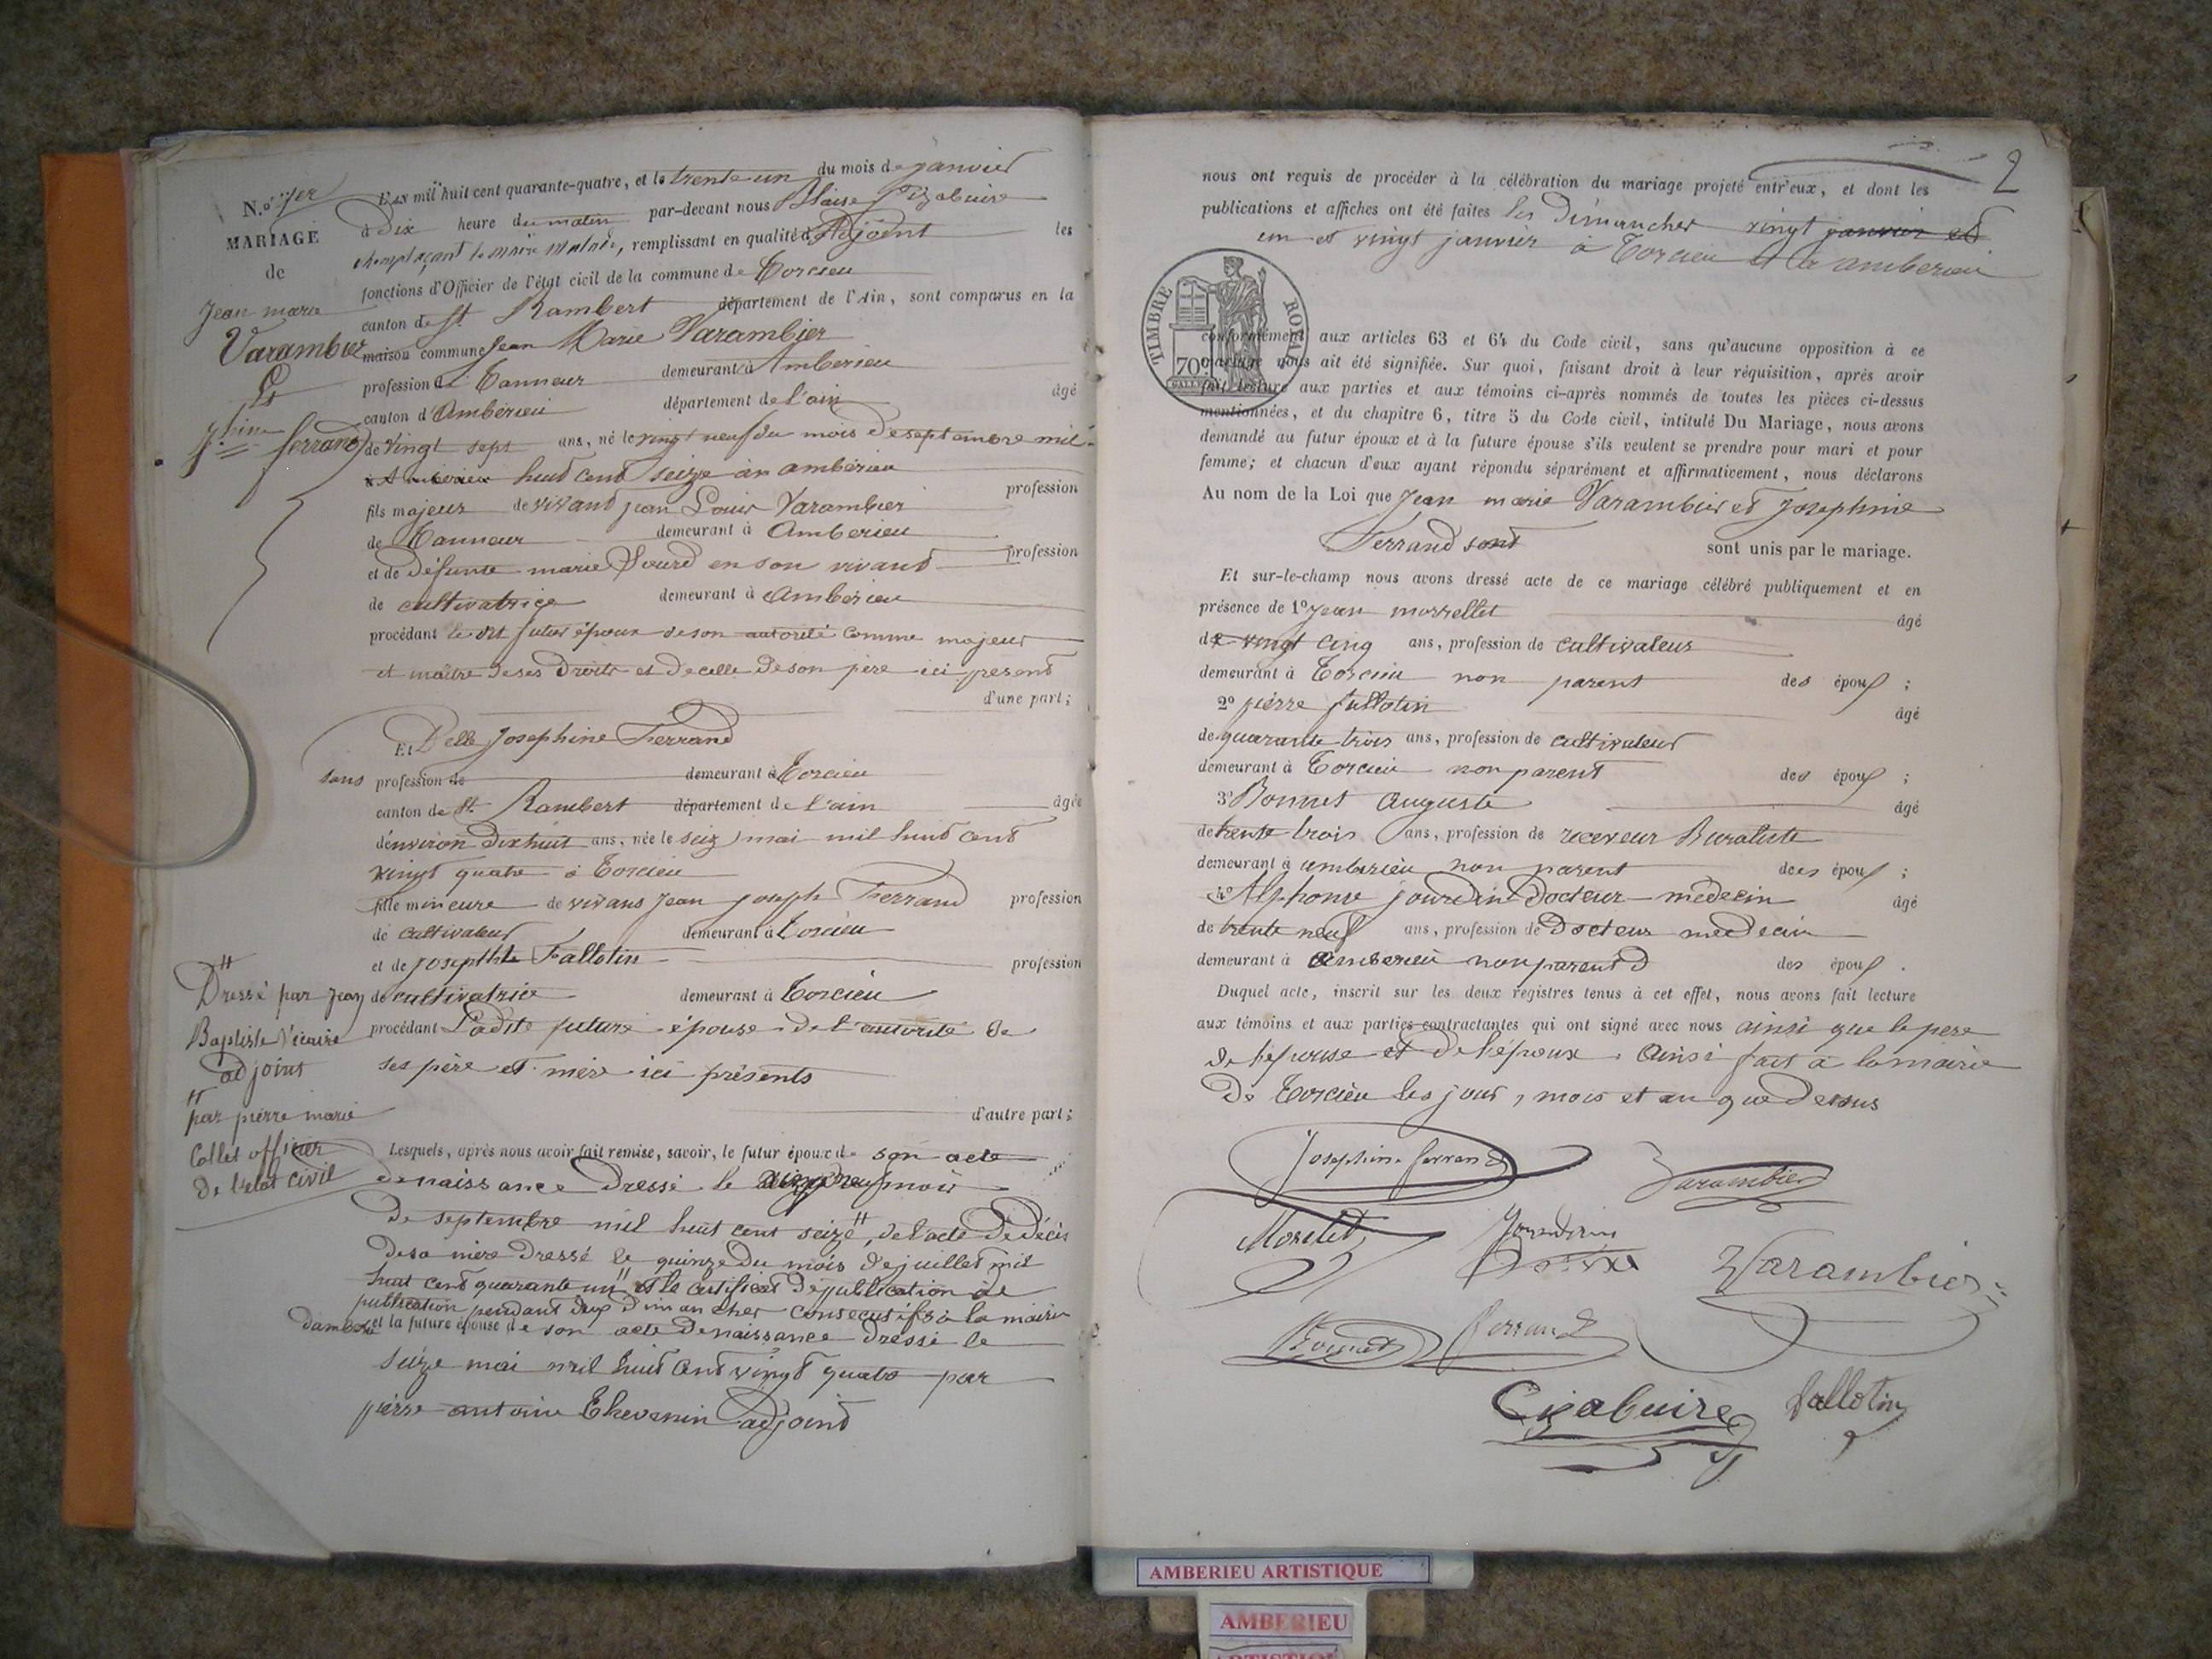 N.o 1er
MARIAGE
de
Jean marie
Varambier
Et
Jphine ferrand
L'AN mil huit cent quarante-quatre, et le trente un du mois de janvier
à dix heure du matin par-devant nous Blaise
remplaçant le maire malade, remplissant en qualité d'Adjoint les
fonctions d'Officier de l'état civil de la commune de Torcieu
canton de St Rambert département de l'Ain, sont comparus en la
maison commune Jean Marie Varambier
profession de Tanneur demeurant à Amberieu
canton d'Ambérieu département de l'ain âgé
de vingt sept ans, né le vingt neuf du mois de septembre mil
huit cent seize à ambérieu
fils majeur de vivant jean Louis Varambier profession
de Tanneur demeurant à Amberieu
et de défunte marie Sourd en son vivant profession
de cultivatrice demeurant à Ambérieu
procédant le dit futur époux de son autorité comme majeur
et maître de ses droits et de celle de son père ici présent
d'une part ;
Et Delle Josephine Ferrand
sans profession de demeurant à Torcieu
canton de St Rambert département de l'ain âgée
d'environ dix huit ans, née le seize mai mil huit cent
vingt quatre à Torcieu
fille mineure de vivans Jean joseph Ferrand profession
de cultivateur demeurant à Torcieu
et de josephte Fallotin profession
de cultivatrice demeurant à Torcieu
procédant Ladite future épouse de l'autorité de
ses père et mère ici présents
d'autre part ;
Lesquels, après nous avoir fait remise, savoir, le futur époux de son acte
de naissance dressé le vingt neuf mois
de septembre mil huit cent seize #, de l'acte de décès
de sa mère dressé le quinze du mois de juillet mil
huit cent quarante un # et le certificat de publication de
publication pendant deux dimancher consecutifs à la mairie
et la future épouse de son acte de naissance dressé le
seize mai mil huit cent vingt quatre par
pierre antoine Thevenin adjoint
#
Dressé par jean
Baptiste Vicaire
adjoint
#
par pierre marie
Collet officier
de l'etat civil
2
nous ont requis de procéder à la célébration du mariage projeté entr'eux, et dont les
publications et affiches ont été faites les Dimancher vingt janvier et
un et vingt janvier à Torcieu et à amberieu
TIMBRE ROYAL
70c
conformément aux articles 63 et 64 du Code civil, sans qu'aucune opposition à ce
mariage nous ait été signifiée. Sur quoi, faisant droit à leur réquisition, après avoir
fait lecture aux parties et aux témoins ci-après nommés de toutes les pièces ci-dessus
mentionnées, et du chapitre 6, titre 5 du Code civil, intitulé Du Mariage, nous avons
demandé au futur époux et à la future épouse s'ils veulent se prendre pour mari et pour
femme; et chacun d'eux ayant répondu séparément et affirmativement, nous déclarons
Au nom de la Loi que Jean marie Varambier et Josephine
Ferrand sont sont unis par le mariage.
Et sur-le-champ nous avons dressé acte de ce mariage célébré publiquement et en
présence de 1o Jean morrellet âgé
de vingt cinq ans, profession de cultivateur
demeurant à Torcieu non parent des époux ;
2o pierre fallotin âgé
de quarante trois ans, profession de cultivateur
demeurant à Torcieu non parent des époux ;
3o Bonnet Auguste âgé
de trente trois ans, profession de receveur Buraliste
demeurant à amberieu non parent des époux ;
4o Alphonse jourdin Docteur medecin âgé
de trente neuf ans, profession de Docteur medecin
demeurant à Amberieu non parent des époux .
Duquel acte, inscrit sur les deux registres tenus à cet effet, nous avons fait lecture
aux témoins et aux parties contractantes qui ont signé avec nous ainsi que le pere
de l'épouse et de l'époux. Ainsi fait à la mairie
De Torcieu les jour, mois et an que dessus
Josephine ferrand
Varambier
Morelet
Varambier
Bonnet
ferrand
fallotin
AMBERIEU ARTISTIQUE
AMBERIEU
ARTISTIQUE